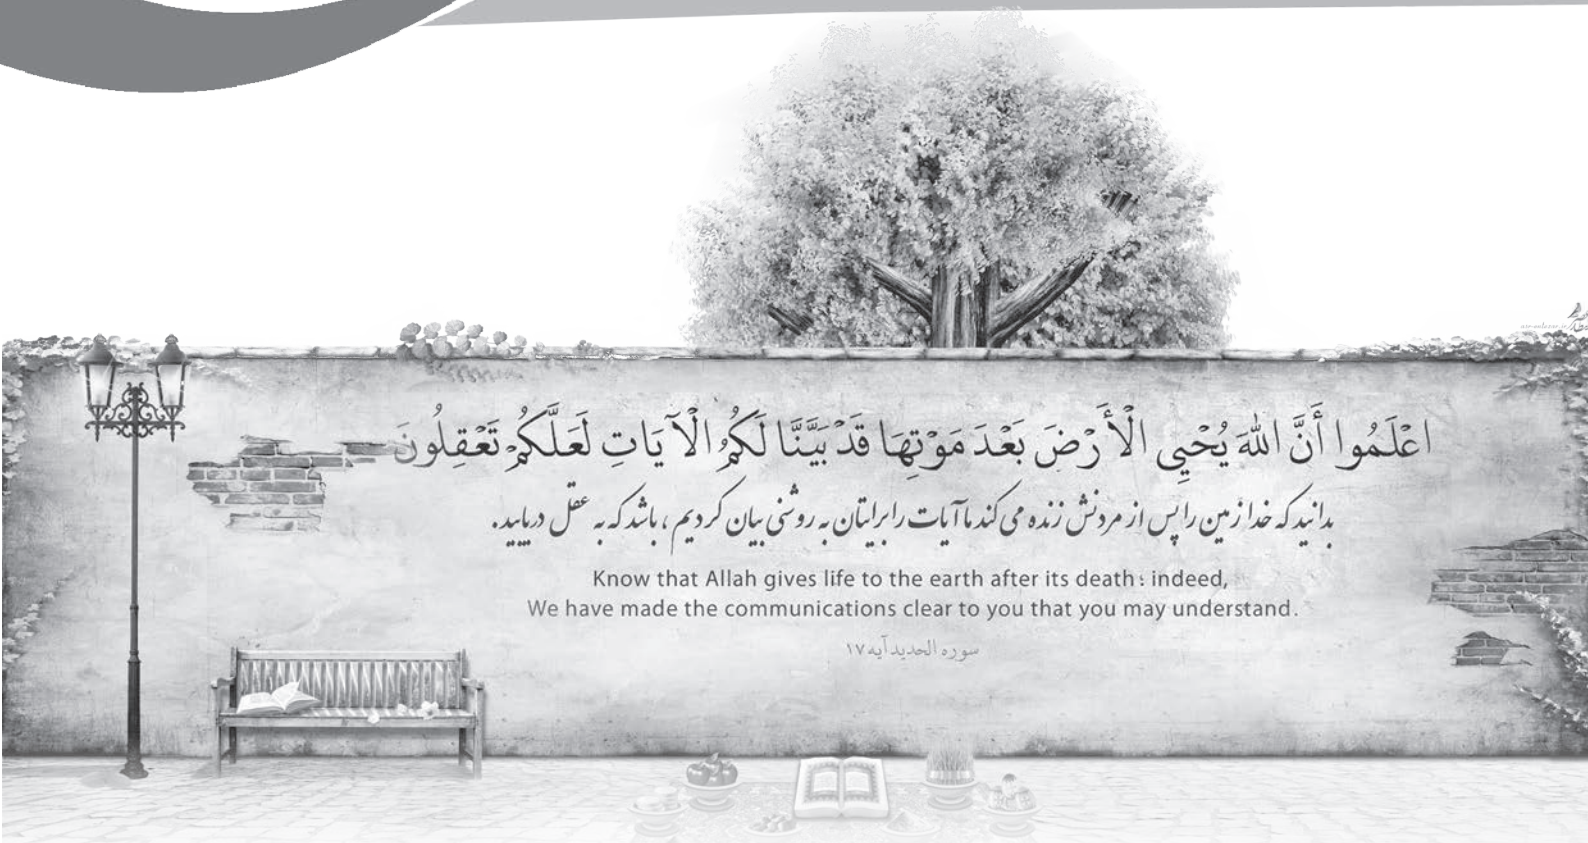 اعْلَمُوا أَنَّ اللهَ يُحْيِي الْأَرْضَ بَعْدَ مَوْتِهَا قَدْ بَيَّنَّا لَكُمُ الْآيَاتِ لَعَلَّكُمْ تَعْقِلُونَ
بدانید که خدا زمین را پس از مردنش زنده می کند ما آیات را برایتان به روشنی بیان کردیم ، باشد که به عقل دریابید.
Know that Allah gives life to the earth after its death؛ indeed,
We have made the communications clear to you that you may understand.
سوره الحدید آیه ۱۷